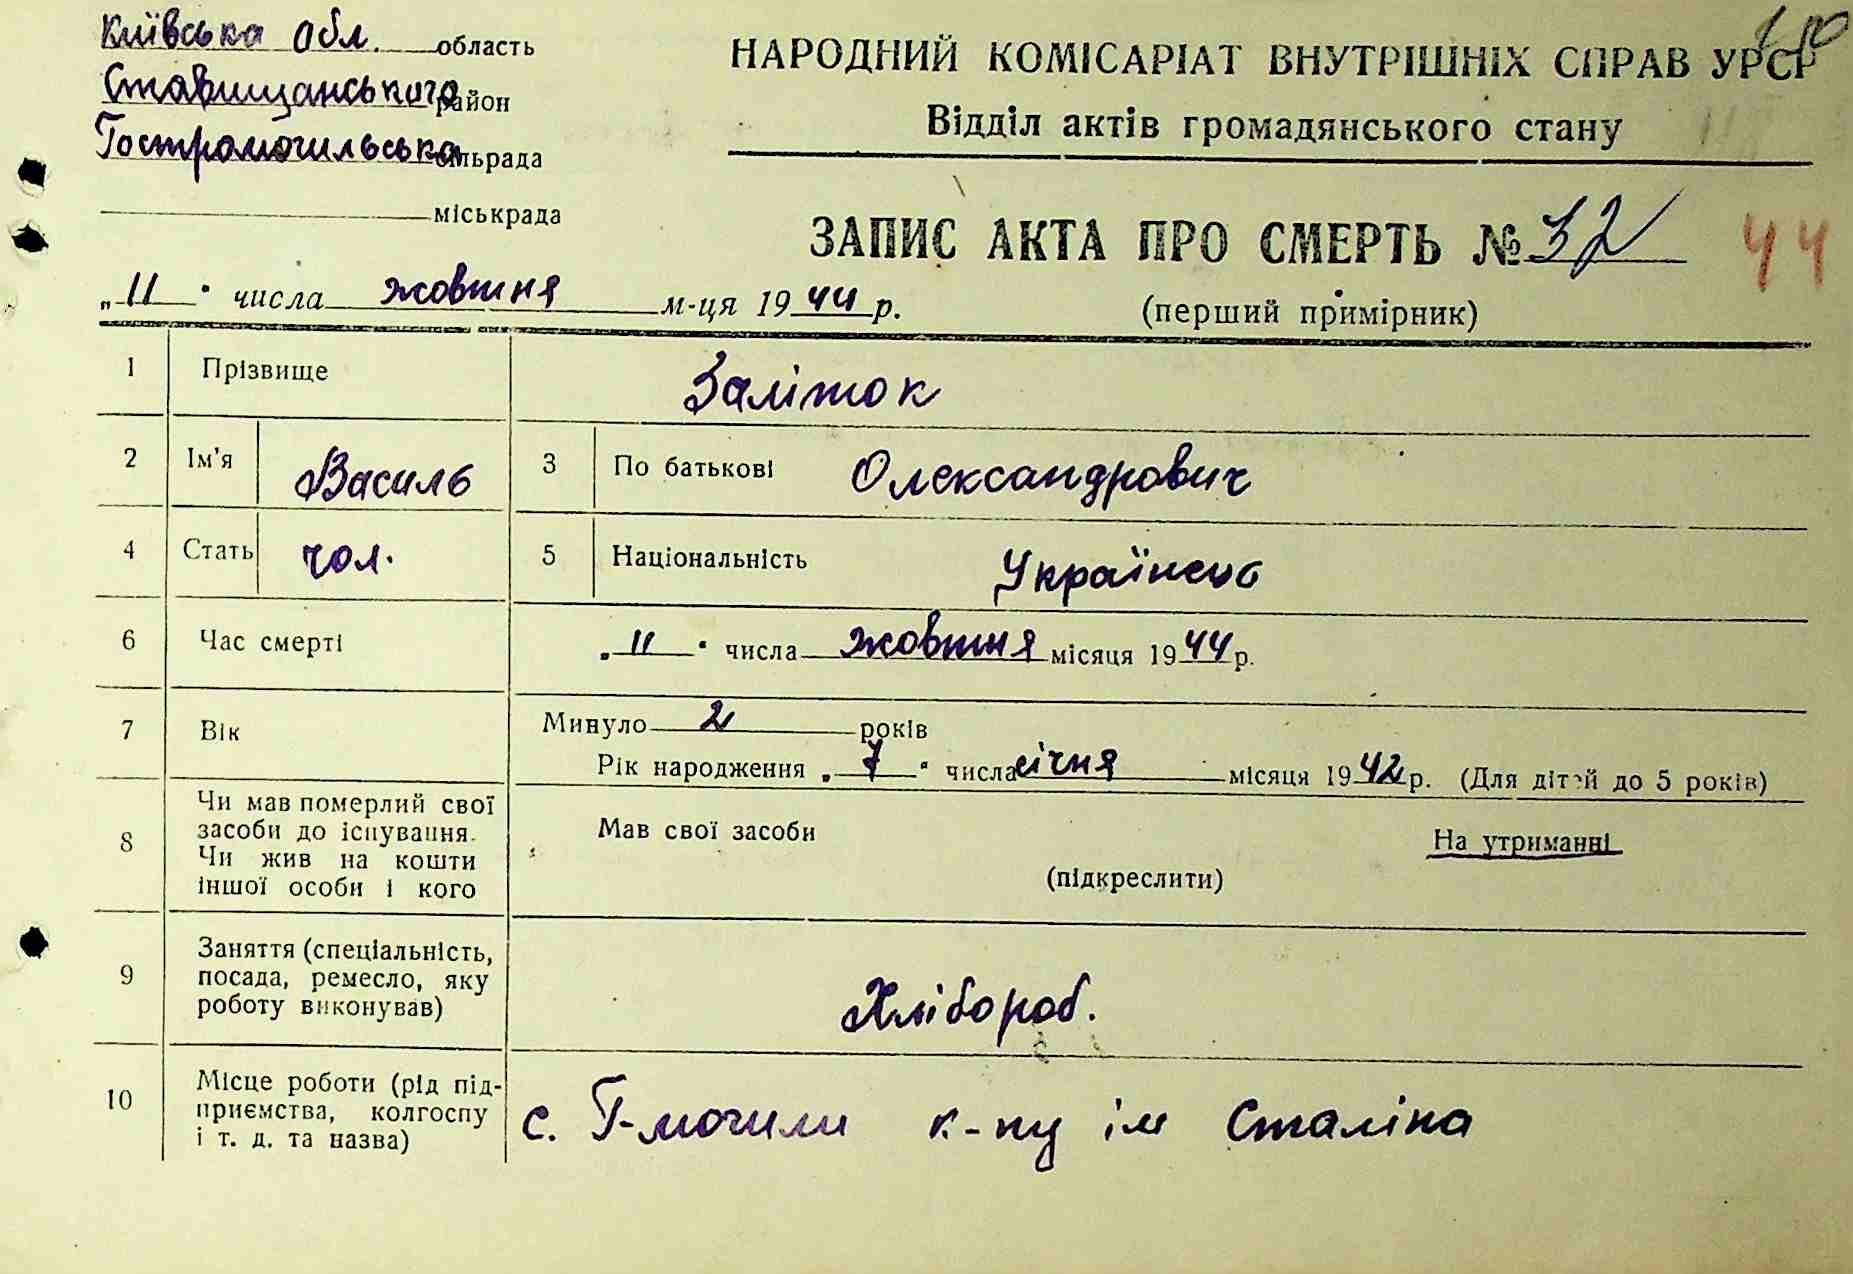 Київська обл. область
Ставищанського район
Гостромогильська сільрада
міськрада
НАРОДНИЙ КОМІСАРІАТ ВНУТРІШНІХ СПРАВ УРСР
Відділ актів громадянського стану
ЗАПИС АКТА ПРО СМЕРТЬ № 32 44
„11" числа жовтня м-ця 1944 р.
(перший примірник)
1 Прізвище Заліток
2 Ім'я Василь 3 По батькові Олександрович
4 Стать чол. 5 Національність Українець
6 Час смерті „11" числа жовтня місяця 1944 р.
7 Вік Минуло 2 років
Рік народження „7" числа січня місяця 1942 р. (Для дітей до 5 років)
8 Чи мав померлий свої засоби до існування. Чи жив на кошти іншої особи і кого
Мав свої засоби На утриманні
(підкреслити)
9 Заняття (спеціальність, посада, ремесло, яку роботу виконував) Хлібороб.
10 Місце роботи (рід підприємства, колгоспу і т. д. та назва) с. Г-могили к-пу ім Сталіна